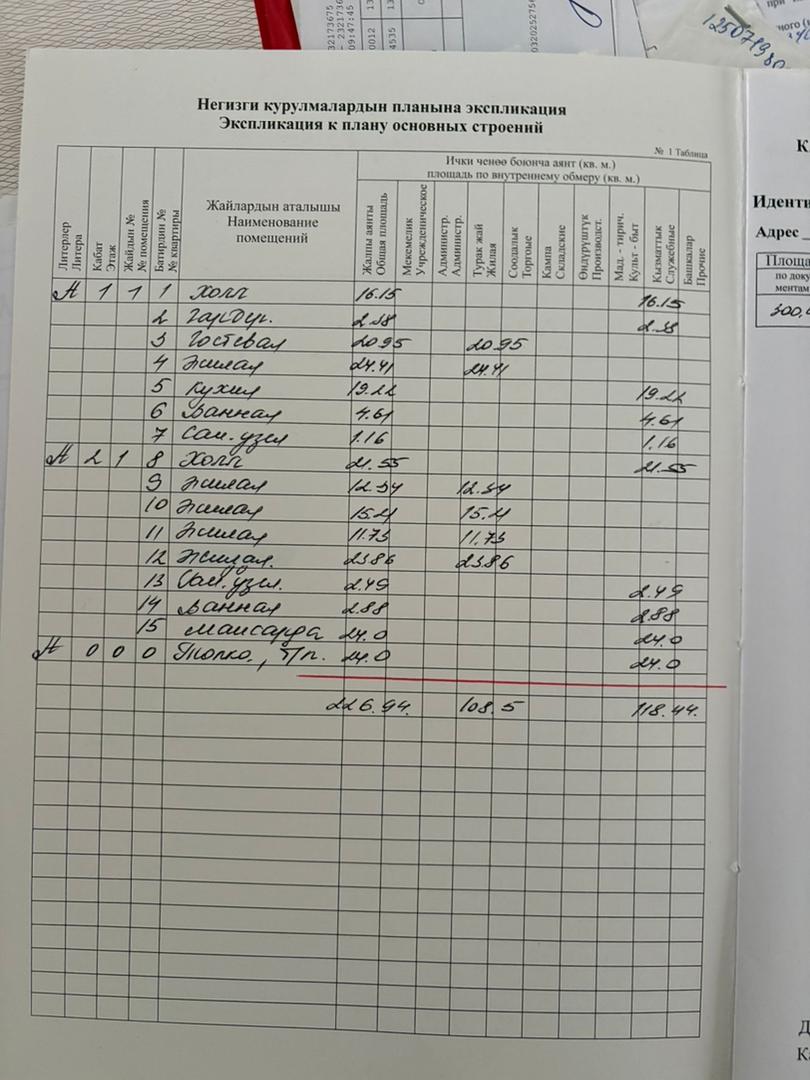 32173675
- 2321736
09:47:45
0012
4535
0320252756
12507198
Негизги курулмалардын планына экспликация
Экспликация к плану основных строений
№ 1 Таблица
Литерлер Литера
Кабат Этаж
Жайдын № № помещения
Батирдин № № квартиры
Жайлардын аталышы
Наименование
помещений
Ички ченөө боюнча аянт (кв. м.)
площадь по внутреннему обмеру (кв. м.)
Жалпы аянты Общая площадь
Мекемелик Учрежденическое
Администр. Администр.
Турак жай Жилая
Соодалык Торговые
Кампа Складские
Өндүрүштүк Производст.
Мад. - тирич. Культ - быт
Кызматтык Служебные
Башкалар Прочие
А 1 1 1 Холл 16.15 16.15
2 2.38 2.38
3 Гостевая 20.95 20.95
4 Жилая 24.41 24.41
5 Кухня 19.22 19.22
6 Ванная 4.61 4.61
7 Сан.узел 1.16 1.16
А 2 1 8 Холл 21.55 21.55
9 Жилая 12.34 12.34
10 Жилая 15.21 15.21
11 Жилая 11.73 11.73
12 Жилая. 23.86 23.86
13 Сан.узел. 2.49 2.49
14 Ванная 2.88 2.88
15 мансарда 24.0 24.0
А 0 0 0 24.0 24.0
226.94. 108.5 118.44.
К
Иденти
Адрес
Площа
по доку
ментам
300,
Д
Ка